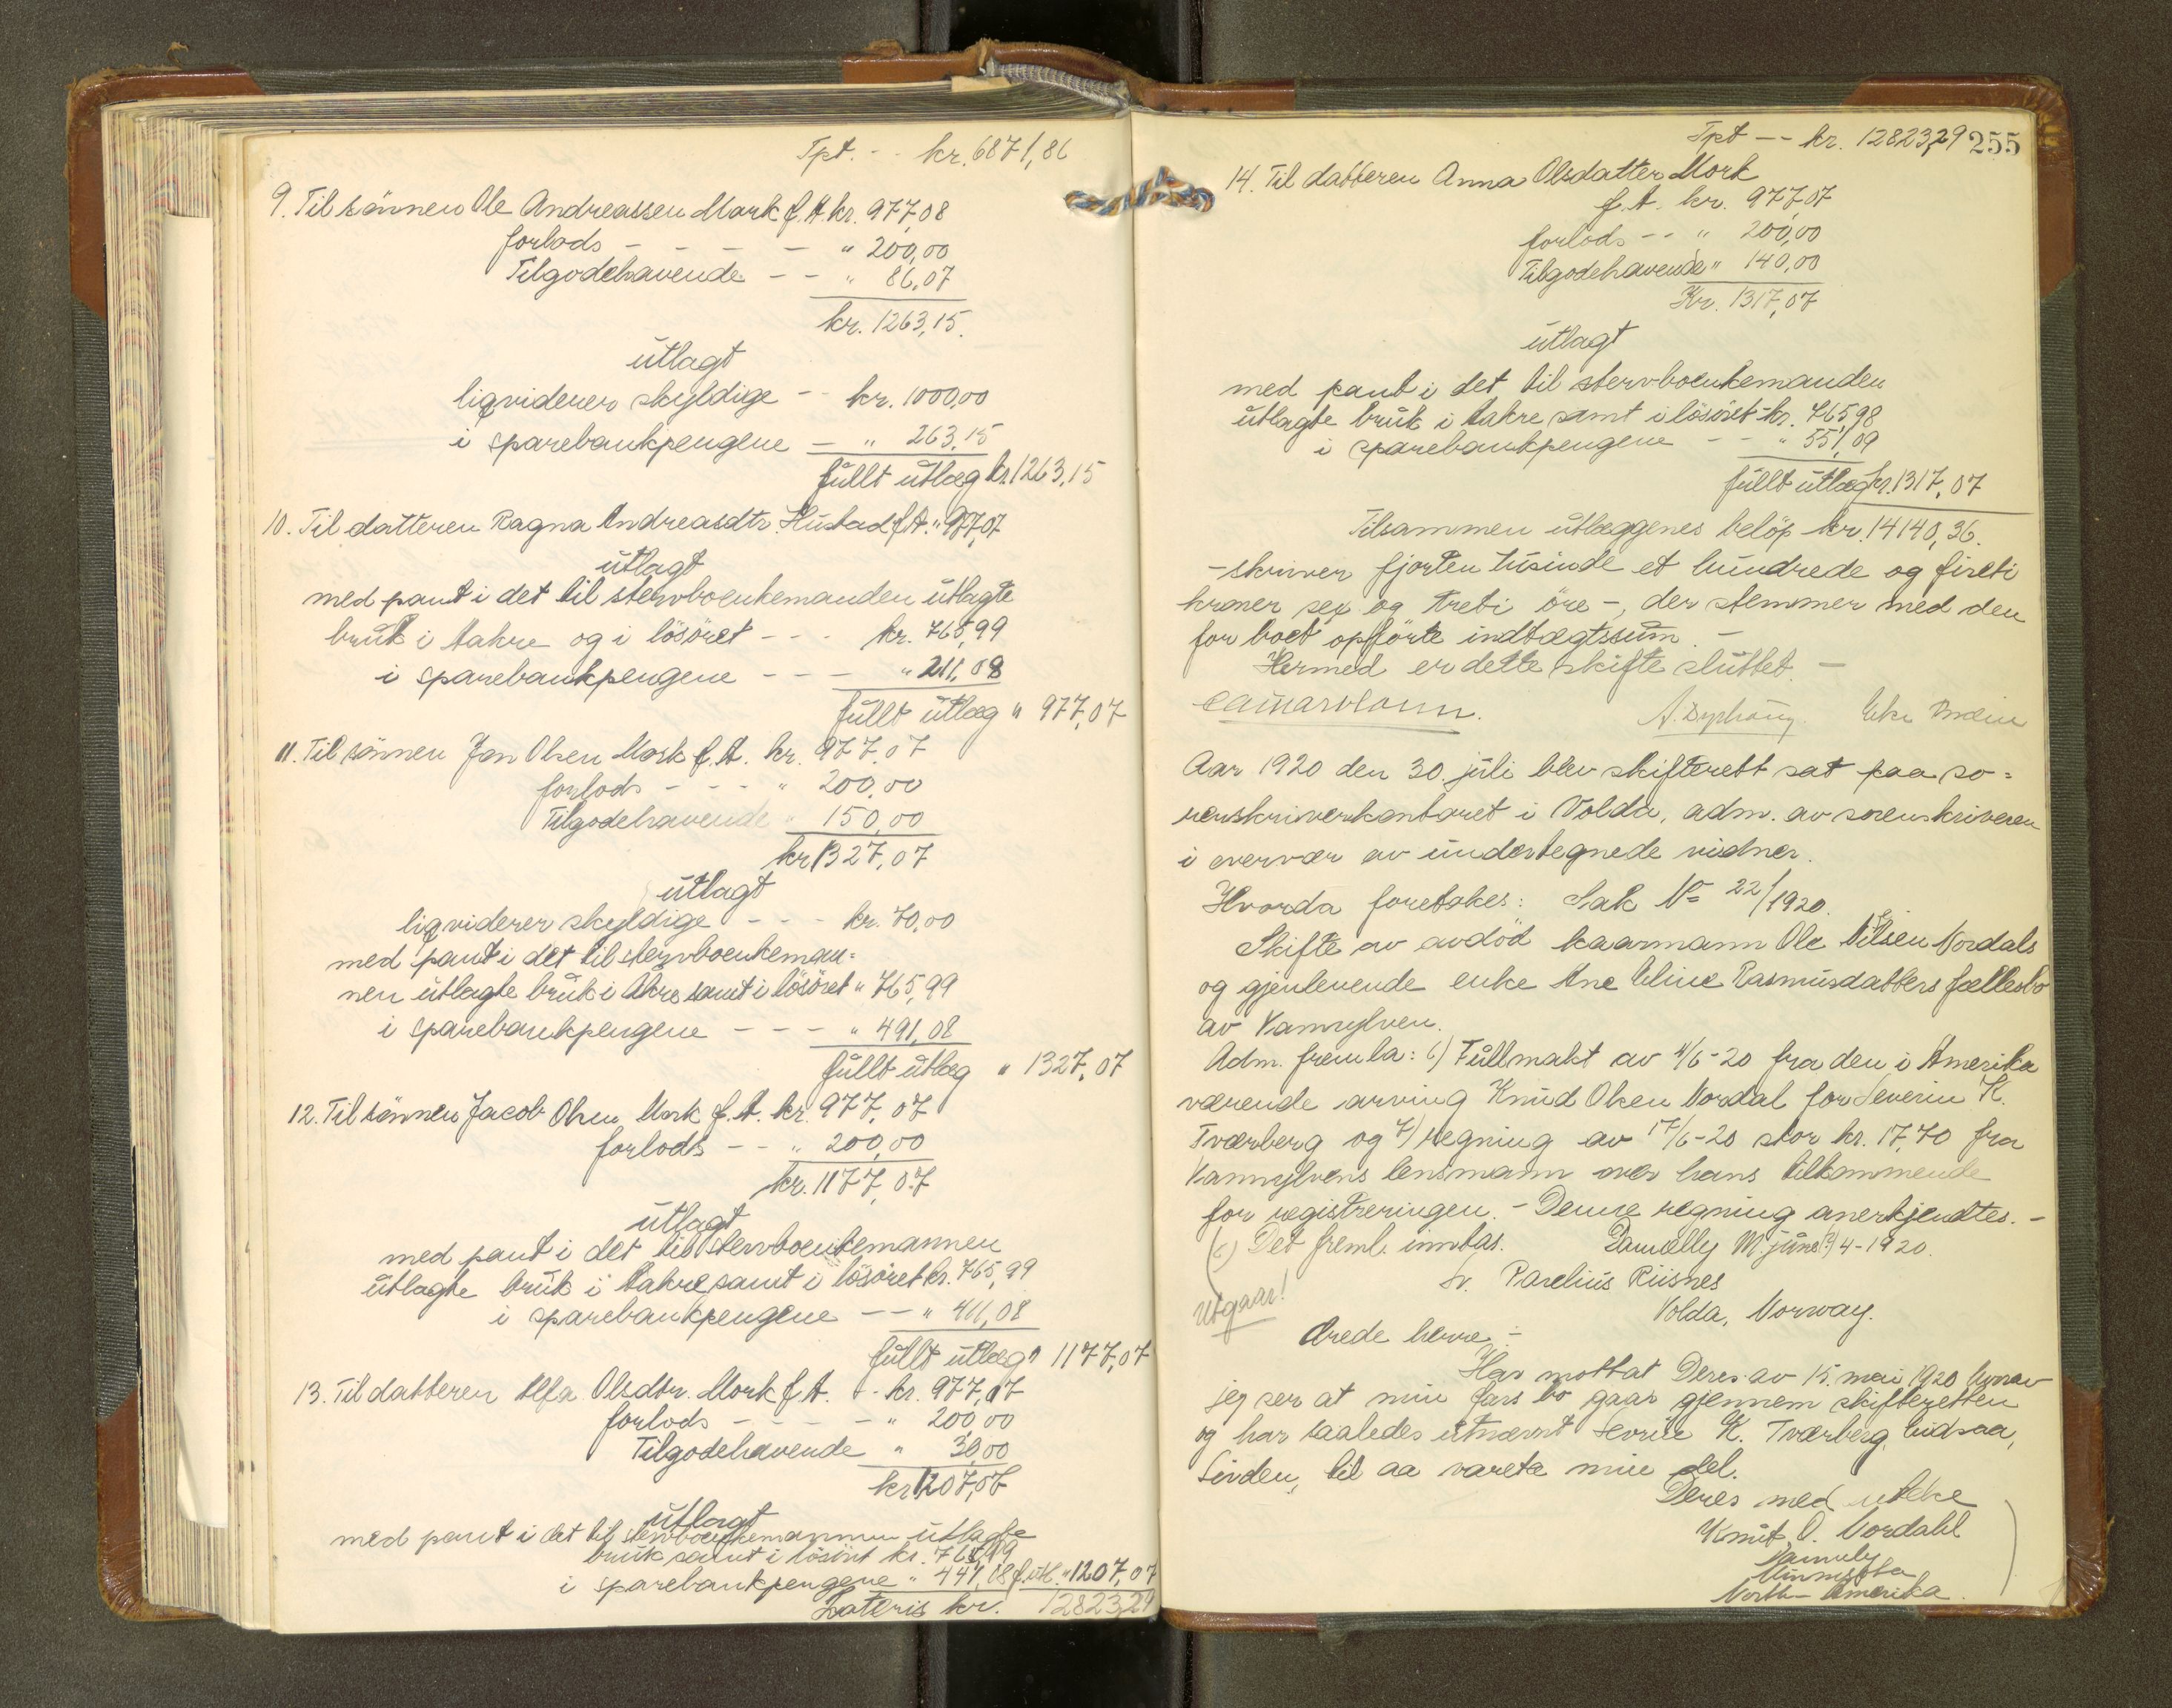 Tpt. - - kr. 6871,86
9. Til sönnen Ole Andreassen Mork f. A. kr. 977,08
forlods - - - - - " 200,00
Tilgodehavende - - " 86,07
kr. 1263,15.
utlagt
liqviderer skyldige - - kr. 1000,00
i sparebankpengene - " 263,15
fullt utlæg kr. 1263,15
10. Til datteren Ragna Andreasdtr. Hustad f. A. " 977,07
utlagt
med pant i det til stervboenkemanden utlagte
bruk i Aakre og i lösöret - - - kr. 765,99
i sparebankpengene - - - " 211,08
fullt utlæg " 977,07
11. Til sönnen Jon Olsen Mork f. A. kr. 977,07
forlods - - - " 200,00
Tilgodehavende " 150,00
kr. 1327,07
utlagt
liqviderer skyldige - - - kr. 70,00
med pant i det til stervboenkeman-
nen utlagte bruk i Akre samt i lösöret " 765,99
i sparebankpengene - - - " 491,08
fullt utlæg " 1327,07
12. Til sönnen Jacob Olsen Mork f. A. kr. 977,07
forlods - - " 200,00
kr. 1177,07
utlagt
med pant i det til stervboenkemannen
utlagte bruk i Aakre samt i lösöret kr. 765,99
i sparebankpengene - - " 411,08
fullt utlæg " 1177,07
13. Til datteren Alfa Olsdtr. Mork f. A. - kr. 977,07
forlods - - - - " 200,00
Tilgodehavende " 30,00
kr. 1207,07
utlagt
med pant i det til stervboenkemannen utlagte
bruk samt i lösöret kr. 765,99
i sparebankpengene " 441,08 f. utl. " 1207,07
Lateris kr. 12823,29
Tpt - - kr. 12823,29 255
14. Til datteren Anna Olsdatter Mork
f. A. kr. 977,07
forlods - - " 200,00
Tilgodehavende " 140,00
Kr. 1317,07
utlagt
med pant i det til stervboenkemanden
utlagte bruk i Aakre samt i lösöret - kr. 765,98
i sparebankpengene - - " 551,09
fullt utlæg kr. 1317,07
Tilsammen utlæggenes belöp kr. 14140,36.
- skriver fjorten tusinde et hundrede og fireti
kroner sex og treti öre -, der stemmer med den
for boet opförte indtægtssum. -
Hermed er dette skifte sluttet. -
A.
Aar 1920 den 30. juli blev skifterett sat paa so=
renskriverkontoret i Volda, adm. av sorenskriveren
i overvær av undertegnede vidner.
Hvorda foretokes: Sak No 22/1920.
Skifte av avdöd kaarmann Ole Nilsen Nordals
og gjenlevende enke Ane Eline Rasmusdatters fællesbo
av Vannylven.
Adm. fremla: 6) Fullmakt av 4/6-20 fra den i Amerika
værende arving Knud Olsen Nordal for Severin K.
Tværberg og 7) regning av 17/6-20 stor kr. 17,70 fra
Vannylvens lensmann over hans tilkommende
for registreringen. - Denne regning anerkjendtes. -
6) Det freml. inntas. M. june (?) 4-1920.
Utgaar!
Sr. Parelius Riisnes
Volda, Norway.
Ærede herre, -
Har mottat Deres av 15. mai 1920 hvorav
jeg ser at min fars bo gaar gjennem skifteretten
og har saaledes utnævnt K. Tværberg,
til aa vareta min del.
Deres med
Knut O. Nordahl
Minnesota
North-Amerika.